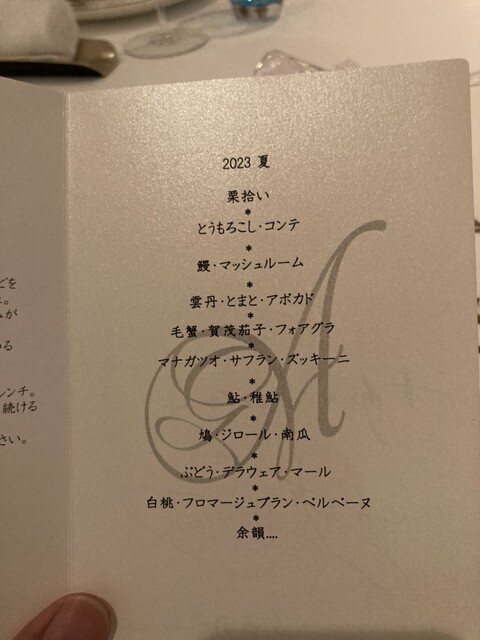 どを
。
が
る
レンチ。
続ける
さい。
2023 夏
栗拾い
*
とうもろこし・コンテ
*
鰻・マッシュルーム
*
雲丹・とまと・アボカド
*
毛蟹・賀茂茄子・フォアグラ
*
マナガツオ・サフラン・ズッキーニ
*
鮎・稚鮎
*
鳩・ジロール・南瓜
*
ぶどう・デラウェア・マール
*
白桃・フロマージュブラン・ベルベーヌ
*
余韻....